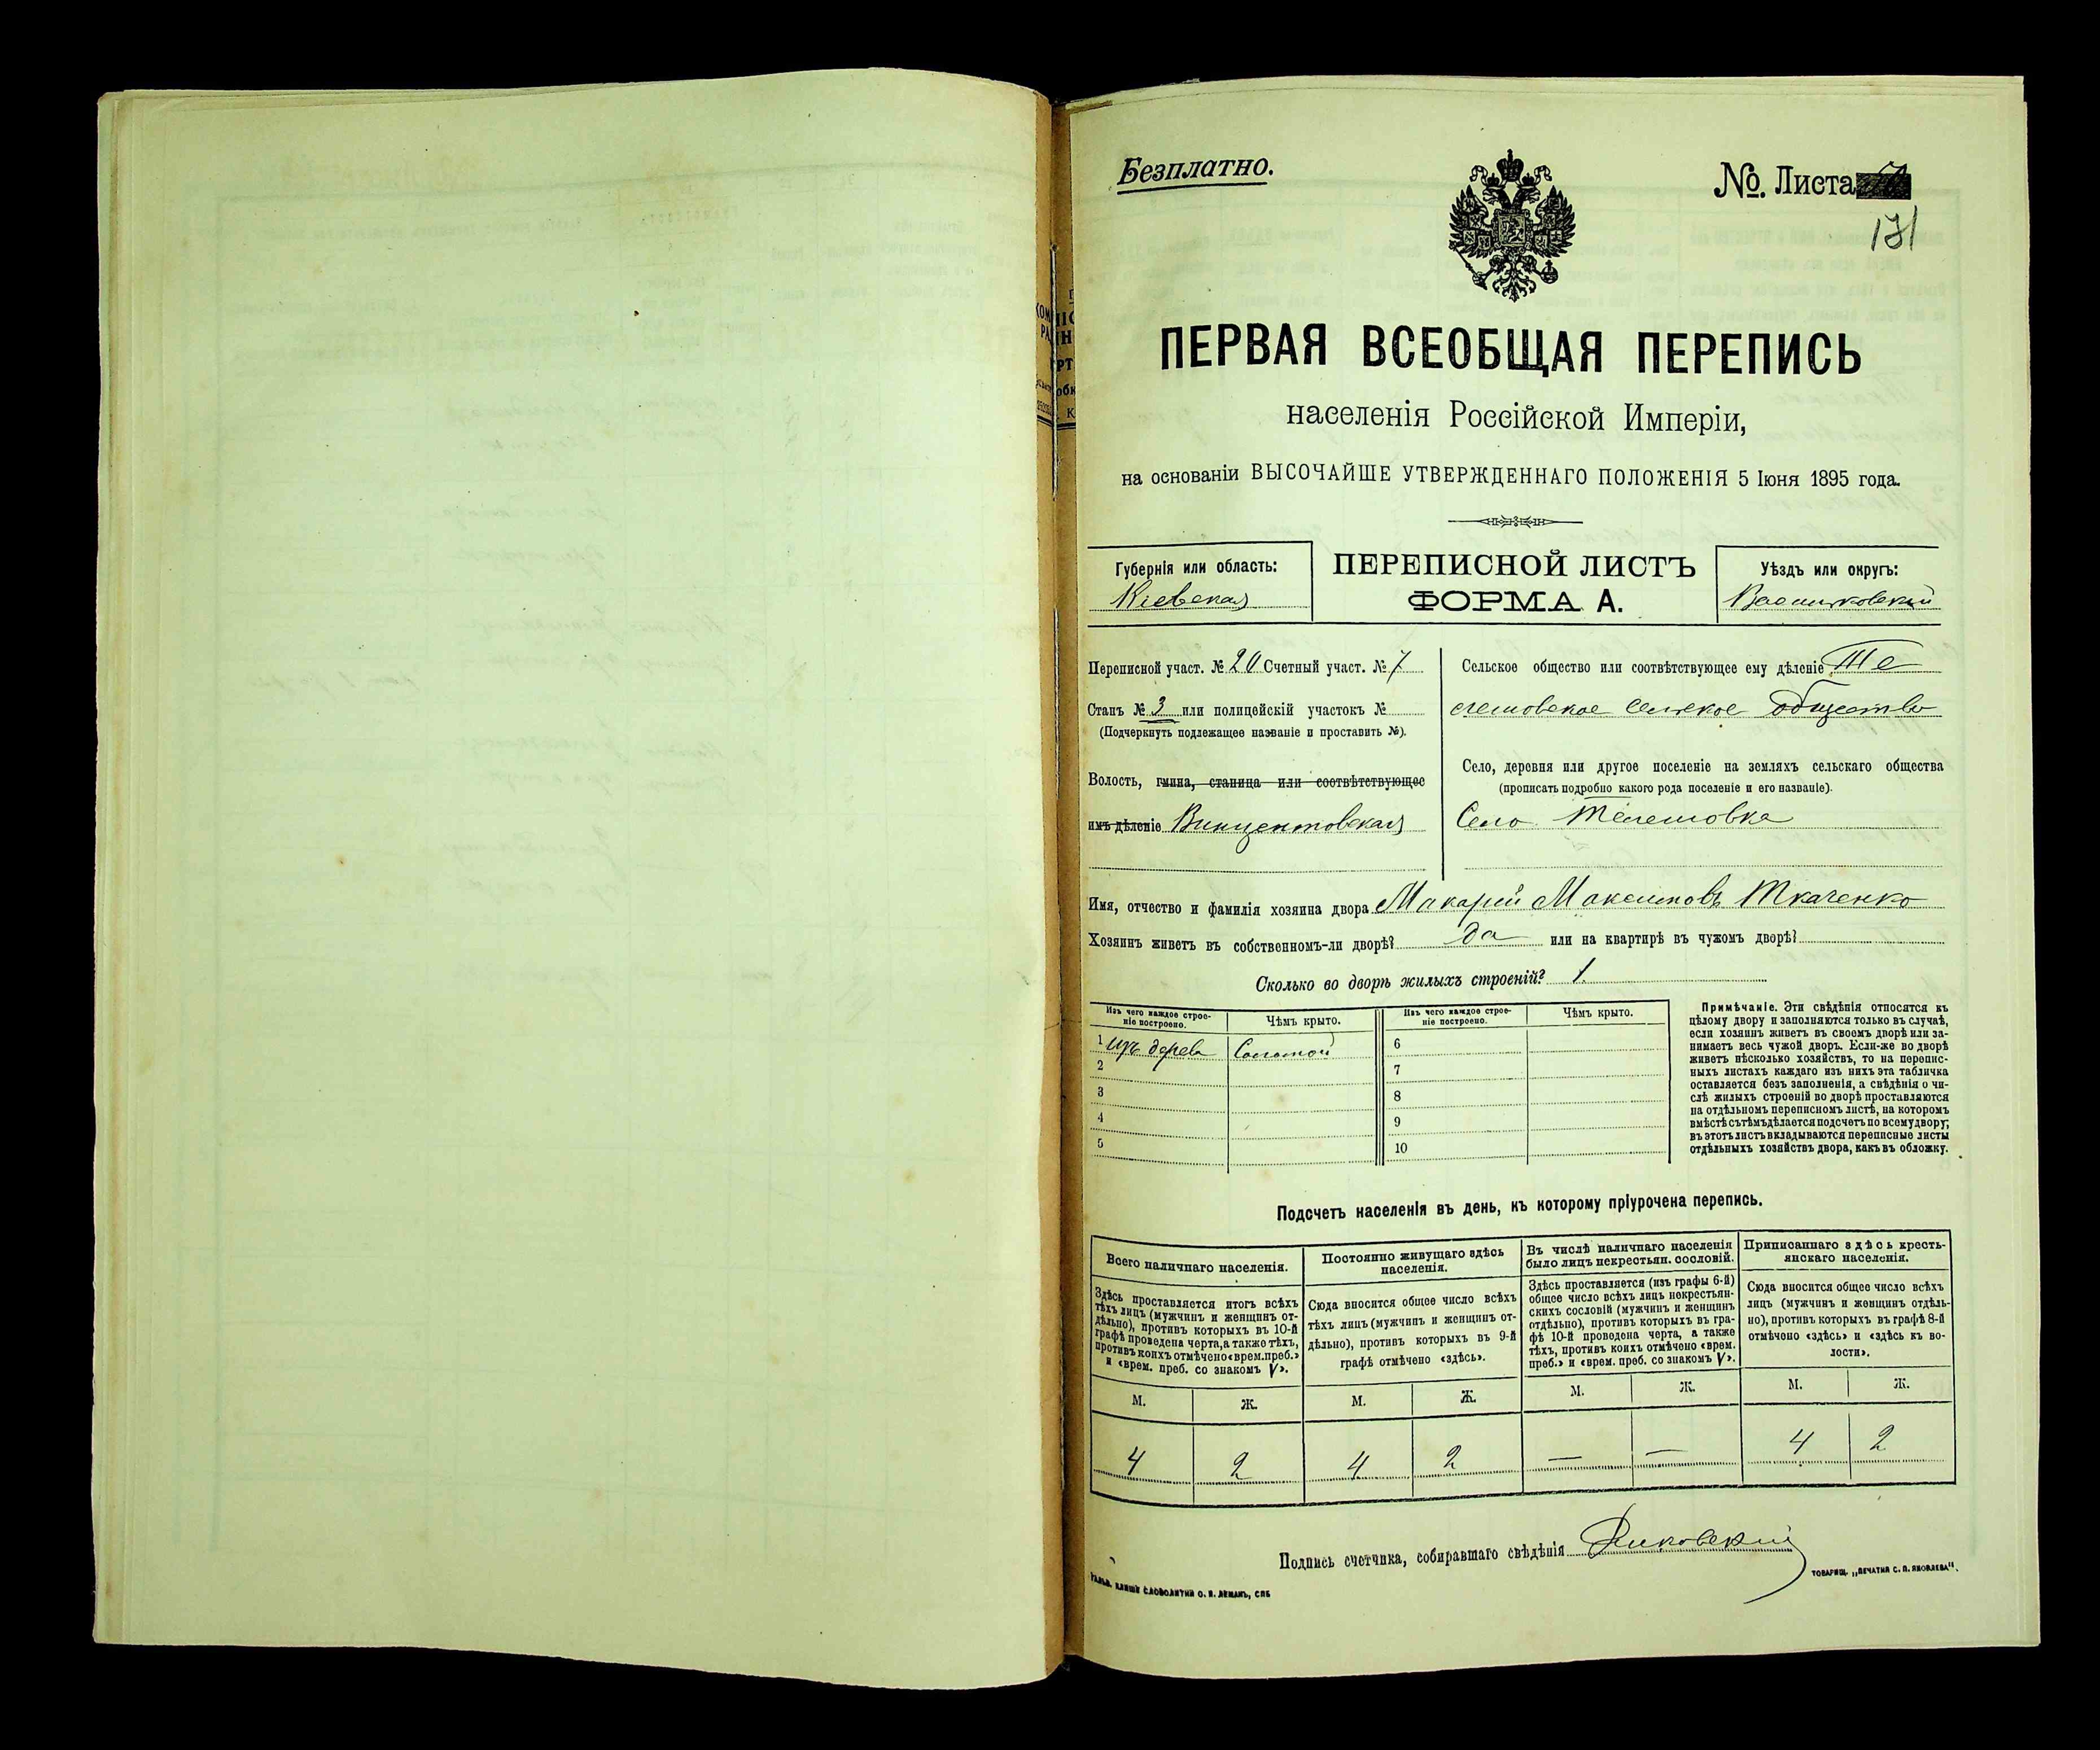 Безплатно.
№. Листа
131
ПЕРВАЯ ВСЕОБЩАЯ ПЕРЕПИСЬ
населенія Россійской Имперіи,
на основаніи ВЫСОЧАЙШЕ УТВЕРЖДЕННАГО ПОЛОЖЕНІЯ 5 Іюня 1895 года.
Губернія или область:
Кіевская
ПЕРЕПИСНОЙ ЛИСТЪ
ФОРМА А.
Уѣздъ или округъ:
Васильковскій
Переписной участ. № 20 Счетный участ. № 7
Станъ № 3 или полицейскій участокъ №
(Подчеркнуть подлежащее названіе и проставить №).
Волость, гмина, станица или соотвѣтствующее
имъ дѣленіе Винцентовская
Сельское общество или соотвѣтствующее ему дѣленіе Те
лешовское сельское общество
Село, деревня или другое поселеніе на земляхъ сельскаго общества
(прописать подробно какого рода поселеніе и его названіе).
Село Телешовка
Имя, отчество и фамилія хозяина двора Макарій Максимовъ Ткаченко
Хозяинъ живетъ въ собственномъ-ли дворѣ? да или на квартирѣ въ чужомъ дворѣ?
Сколько во дворѣ жилыхъ строеній? 1.
Изъ чего каждое строе-
ніе построено.
Чѣмъ крыто.
Изъ чего каждое строе-
ніе построено.
Чѣмъ крыто.
1 изъ дерева Соломой
2
3
4
5
6
7
8
9
10
Примѣчаніе. Эти свѣдѣнія относятся къ
цѣлому двору и заполняются только въ случаѣ,
если хозяинъ живетъ въ своемъ дворѣ или за-
нимаетъ весь чужой дворъ. Если-же во дворѣ
живетъ нѣсколько хозяйствъ, то на перепис-
ныхъ листахъ каждаго изъ нихъ эта табличка
оставляется безъ заполненія, а свѣдѣнія о чи-
слѣ жилыхъ строеній во дворѣ проставляются
на отдѣльномъ переписномъ листѣ, на которомъ
вмѣстѣ съ тѣмъ дѣлается подсчетъ по всему двору;
въ этотъ листъ вкладываются переписные листы
отдѣльныхъ хозяйствъ двора, какъ въ обложку.
Подсчетъ населенія въ день, къ которому пріурочена перепись.
Всего наличнаго населенія.
Здѣсь проставляется итогъ всѣхъ
тѣхъ лицъ (мужчинъ и женщинъ от-
дѣльно), противъ которыхъ въ 10-й
графѣ проведена черта, а также тѣхъ,
противъ коихъ отмѣчено «врем. преб.»
и «врем. преб. со знакомъ V».
Постоянно живущаго здѣсь
населенія.
Сюда вносится общее число всѣхъ
тѣхъ лицъ (мужчинъ и женщинъ от-
дѣльно), противъ которыхъ въ 9-й
графѣ отмѣчено «здѣсь».
Въ числѣ наличнаго населенія
было лицъ некрестьян. сословій.
Здѣсь проставляется (изъ графы 6-й)
общее число всѣхъ лицъ некрестьян-
скихъ сословій (мужчинъ и женщинъ
отдѣльно), противъ которыхъ въ гра-
фѣ 10-й проведена черта, а также
тѣхъ, противъ коихъ отмѣчено «врем.
преб.» и «врем. преб. со знакомъ V».
Приписаннаго здѣсь кресть-
янскаго населенія.
Сюда вносится общее число всѣхъ
лицъ (мужчинъ и женщинъ отдѣль-
но), противъ которыхъ въ графѣ 8-й
отмѣчено «здѣсь» и «здѣсь къ во-
лости».
М. Ж. М. Ж. М. Ж. М. Ж.
4 2 4 2 — — 4 2
Подпись счетчика, собиравшаго свѣдѣнія
СЛОВОЛИТНИ О. И. ЛЕМАНЪ, СПБ
ТОВАРИЩ. „ПЕЧАТНЯ С. П. ЯКОВЛЕВА".